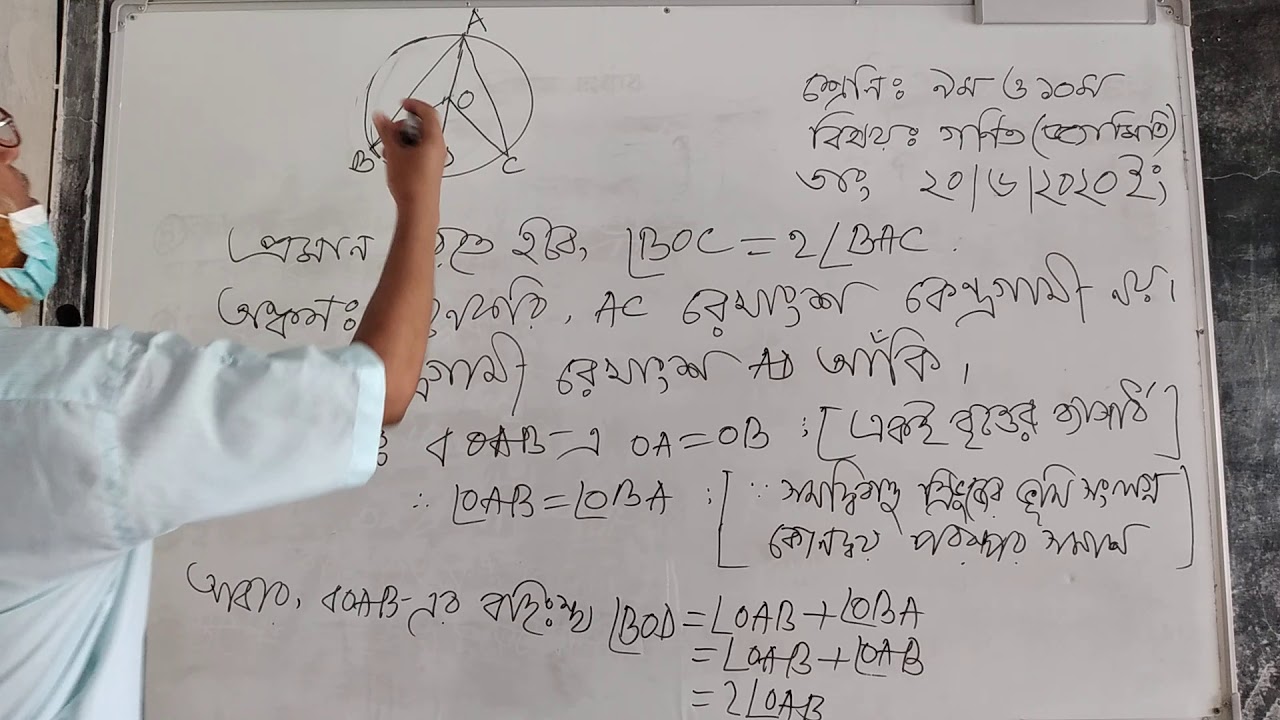 A
O
B
D
C
শ্রেনিঃ ৯ম ও ১০ম
বিষয়ঃ গণিত (জ্যামিতি)
তাং ২০/৬/২০২০ইং
প্রমান করতে হবে, ∠BOC = 2∠BAC.
অঙ্কনঃ মনেকরি, AC রেখাংশ কেন্দ্রগামী নয়।
গামী রেখাংশ AD আঁকি।
Δ OAB-এ OA = OB ; [একই বৃত্তের ব্যাসার্ধ]
∴ ∠OAB = ∠OBA ; [∵ সমদ্বিবাহু ত্রিভুজের ভূমি সংলগ্ন
কোনদ্বয় পরস্পর সমান]
আবার, ΔOAB-এর বহিঃস্থ ∠BOD = ∠OAB + ∠OBA
= ∠OAB + ∠OAB
= 2∠OAB